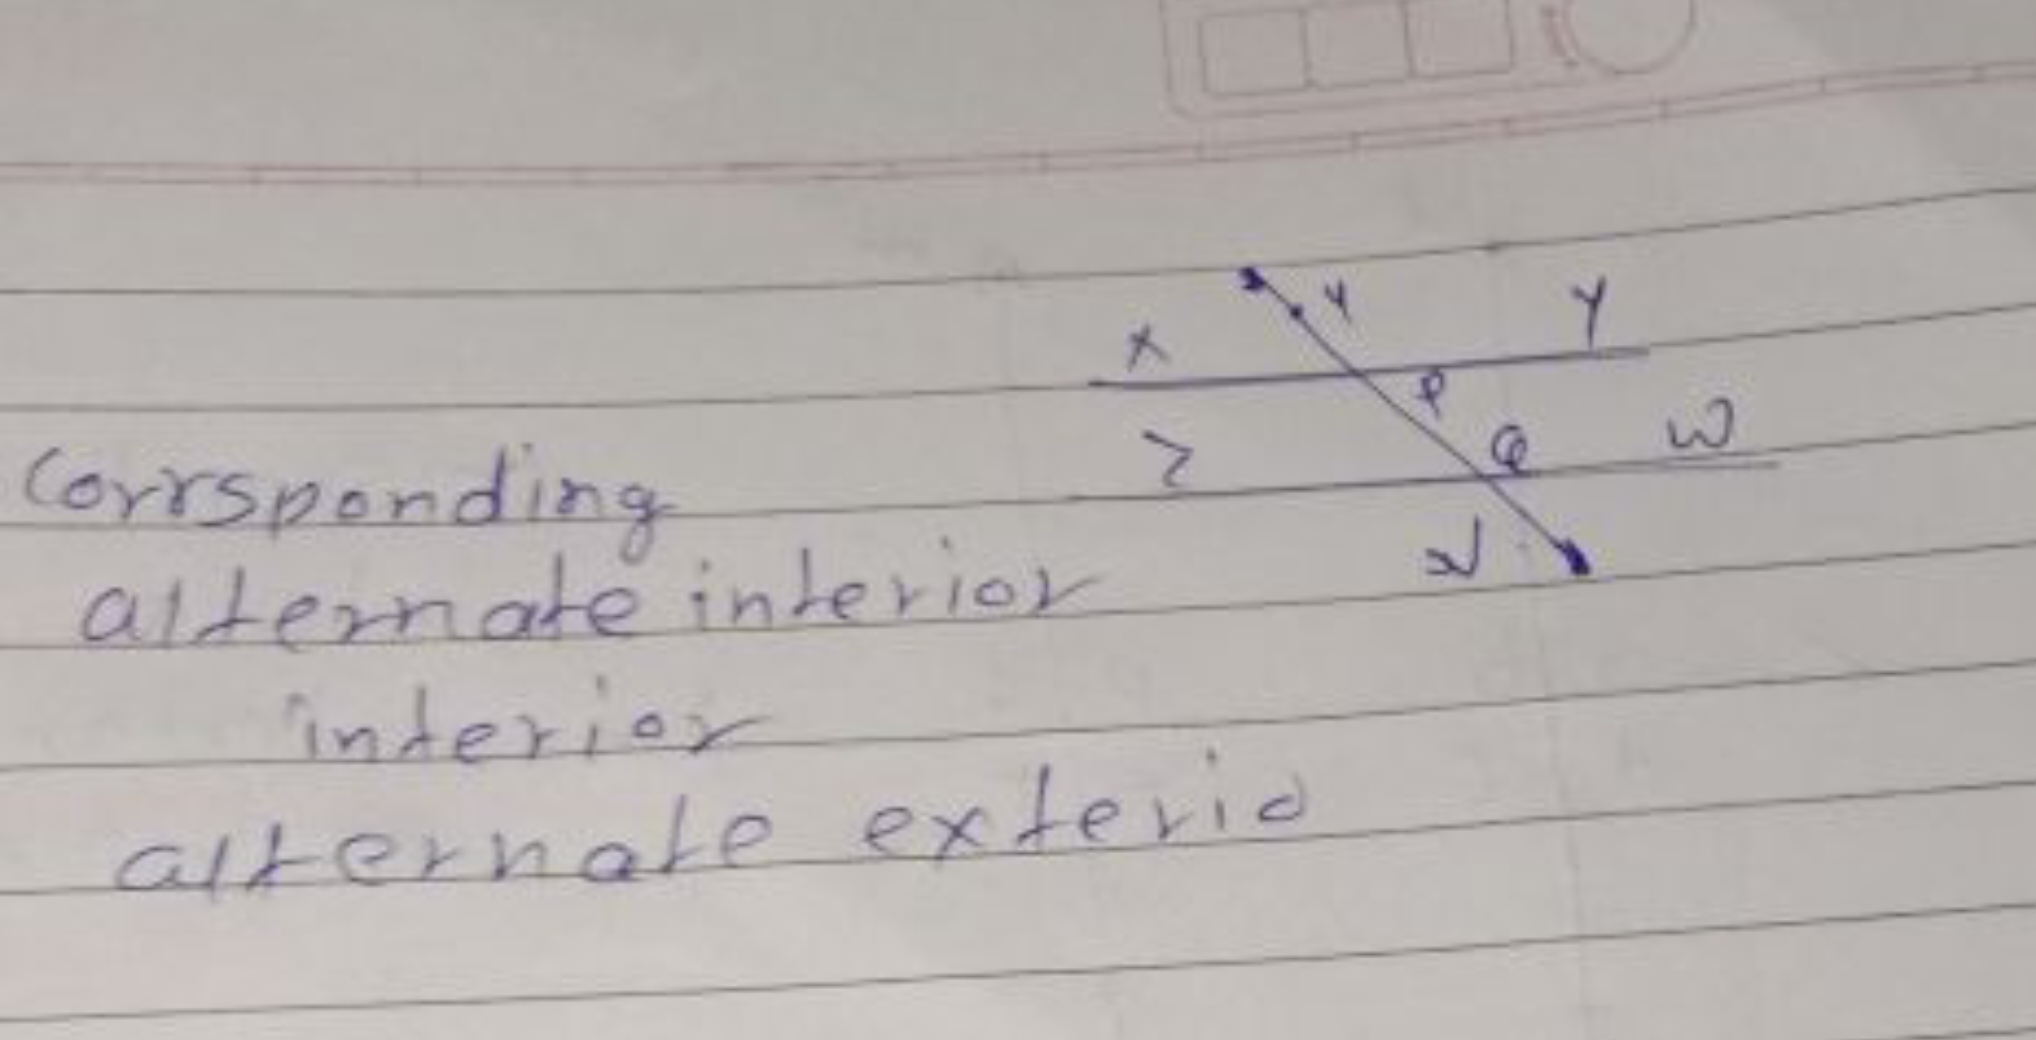 X Y
P
Q W
Corrsponding
alternate interior
interior
alternate exterio